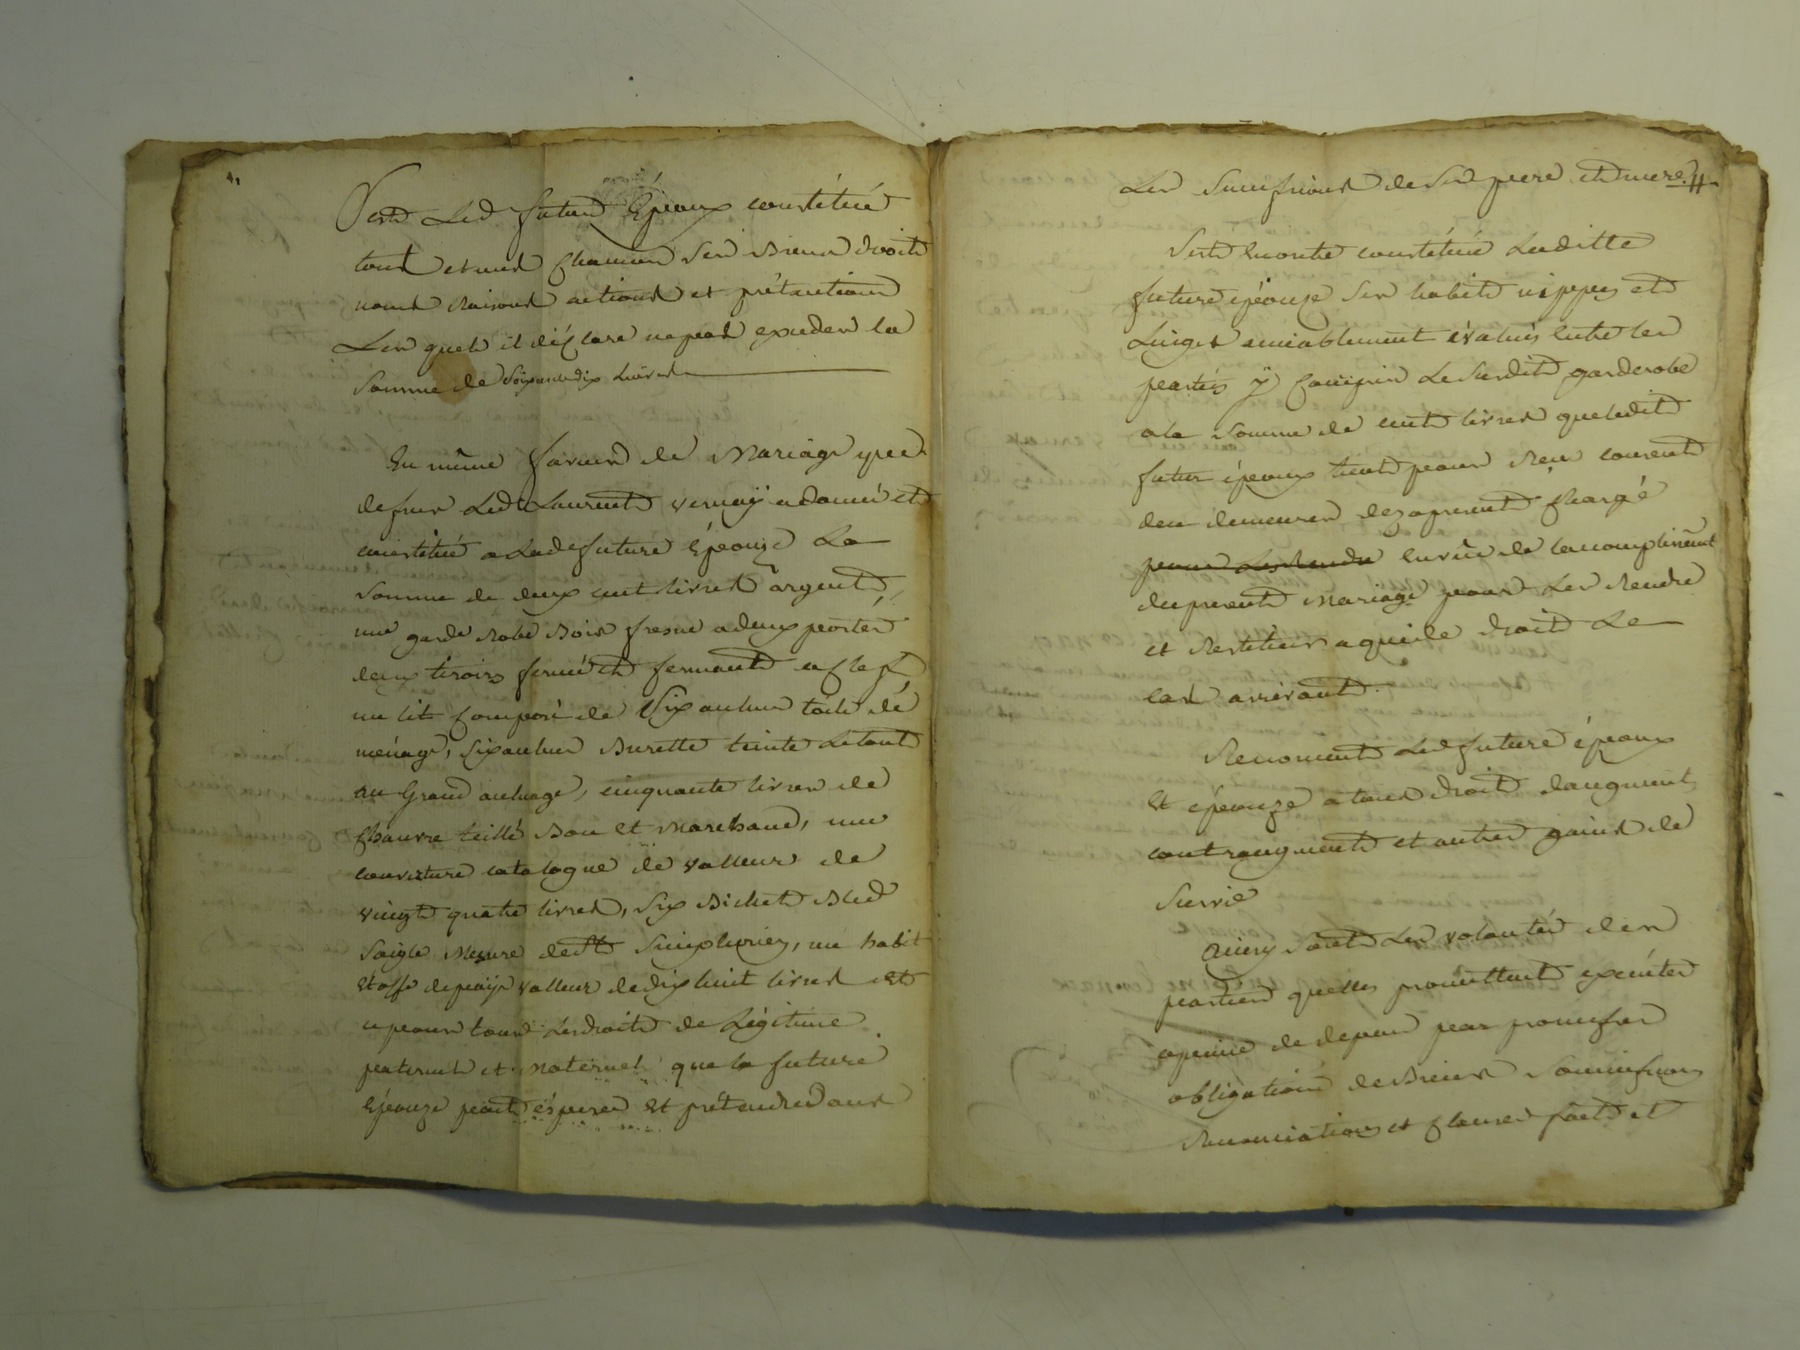 S'est Led. futur Epoux constitué
tout et uns chacun ses Biens droits
noms Raisons actions et prétentions
Les quels il déclare ne pas exceder la
somme de soixante dix Livres
En même faveur de Mariage que
dessus Led. Laurent vernaÿ a donné et
constitué a Lade. future Epouze La
somme de deux cent livres argent,
une garde Robe Bois fresne a deux portes
deux tiroirs ferré et fermant a clef
un lit composé de Six aulnes toile de
ménage, six aulnes Burette teinte Le tout
au Grand aulnage, cinquante livres de
chanvre teillé Bon et Marchand, une
couverture catalogne de valleur de
vingt quatre livres, six Bichets Bled
Saigle Mesure de St Simphorien, un habit
Etoffe de païs valleur de dix huit livres et
ce pour tous Les droits de Légitime
paternels et Maternel que la future
Epouze peut espérer et prétendre dans
Les Successions de Ses pere et mere.
S'est En outre constitué Laditte
future épouze Ses habits nippes et
Linges amiablement évalués Entre les
parties ÿ Compris Le Susdit garderobe
a la somme de cent livres que ledit
futur époux tient pour Reçu consent
d'en demeurer dez a present chargé
pour Les Rendre En vüe de laccomplissement
du present Mariage pour Les Rendre
et Restituer a qui de droit Le
cas arrivant.
Renoncent Led. future époux
Et épouze a tous droits daugment
contraugment et autres gains de
Survie
Ainsy sont Les volontés des
parties quelles promettent exécuter
a peine de depens par promesses
obligations de Biens Soumissions
Renonciations et clauses fait et